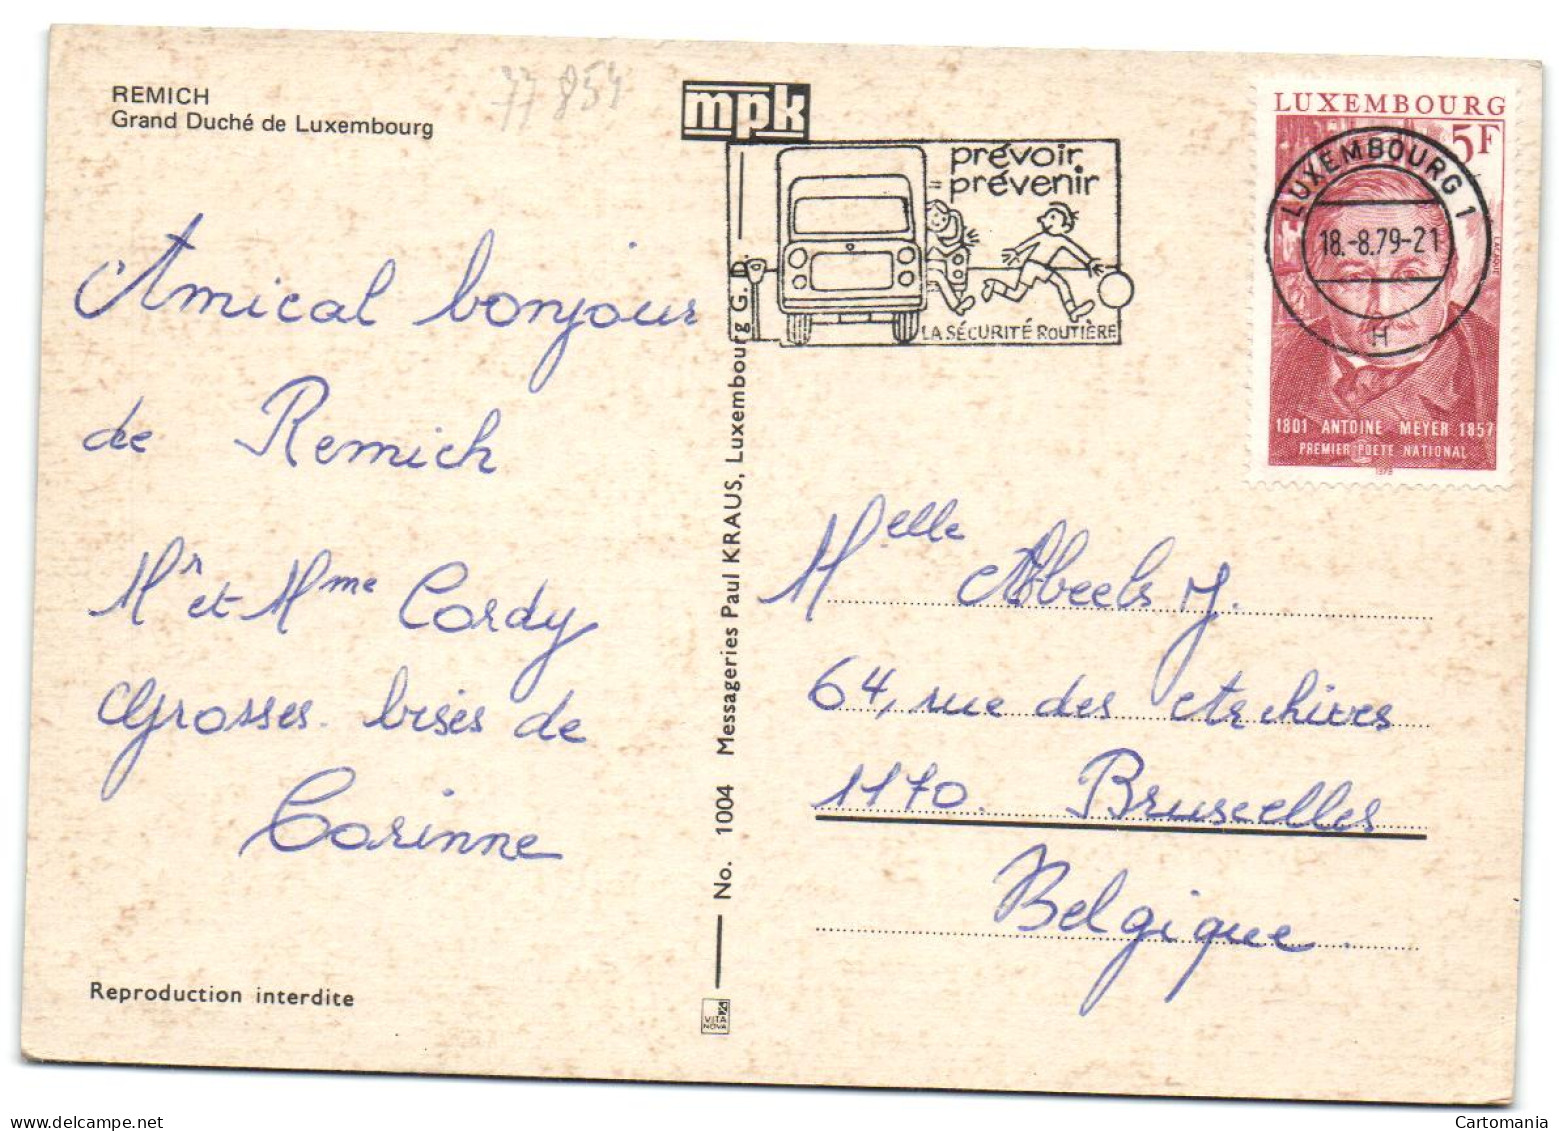 REMICH
Grand Duché de Luxembourg
77 854
Amical bonjour
de Remich
Mr et Mme Cordy
Grosses bises de
Corinne
Reproduction interdite
mpk
No. 1004 Messageries Paul KRAUS, Luxembourg G. D.
VITA
NOVA
prévoir
= prévenir
LA SÉCURITÉ ROUTIÈRE
LUXEMBOURG
5F
LUXEMBOURG 1
18.-8.79-21
H
1801 ANTOINE MEYER 1857
PREMIER POETE NATIONAL
Melle Abeels J.
64, rue des Archives
1170. Bruxelles
Belgique.
delcampe.net
Cartomania